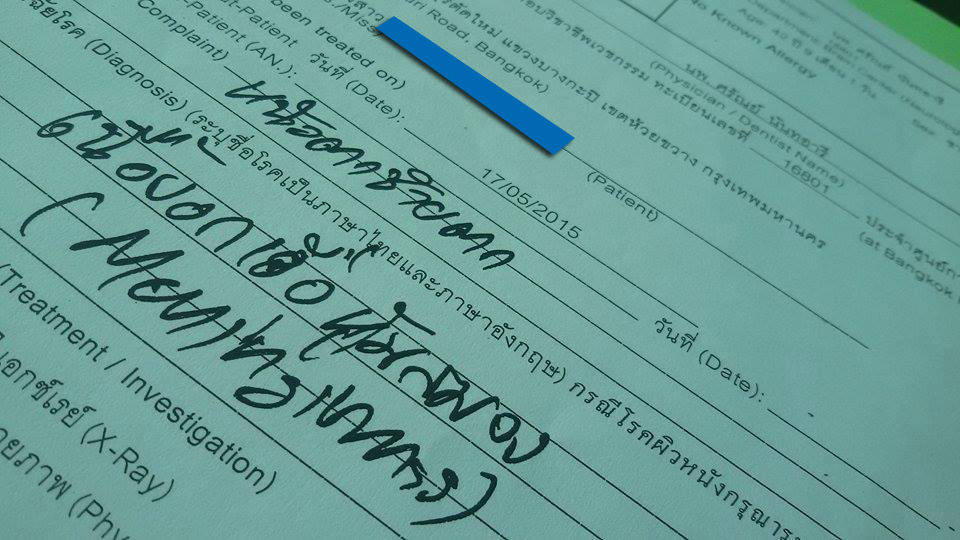 No Known Allergy
นพ. ศรัณย์ นันทอารี
(Physician / Dentist Name)
อบวิชาชีพเวชกรรม ทะเบียนเลขที่ 16801 ประจำศูนย์กา
(at Bangkok
ตัดใหม่ แขวงบางกะปิ เขตห้วยขวาง กรุงเทพมหานคร
Road, Bangkok)
(Patient)
been treated on)
วันที่ (Date): 17/05/2015
t-Patient
-Patient (AN.):
วันที่ (Date): -
Complaint)
หน้าชาซีกขวา
(Diagnosis) (ระบุชื่อโรคเป็นภาษาไทยและภาษาอังกฤษ) กรณีโรคผิวหนังกรุณาระ
เนื้องอกเยื่อหุ้มสมอง
(Meningiomas)
(Treatment / Investigation)
เอกซ์เรย์ (X-Ray)
ายภาพ (Phy